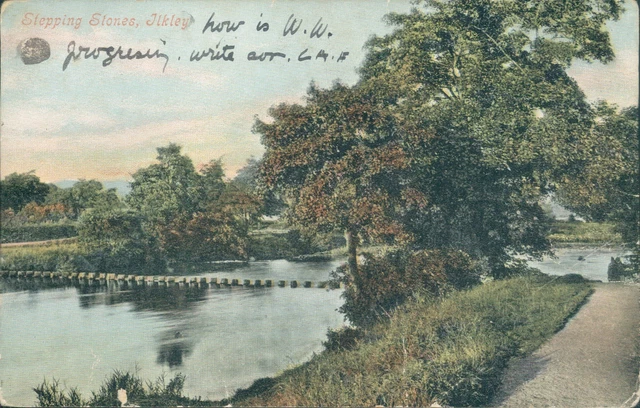 Stepping Stones, Ilkley
how is W.W.
progresin, write